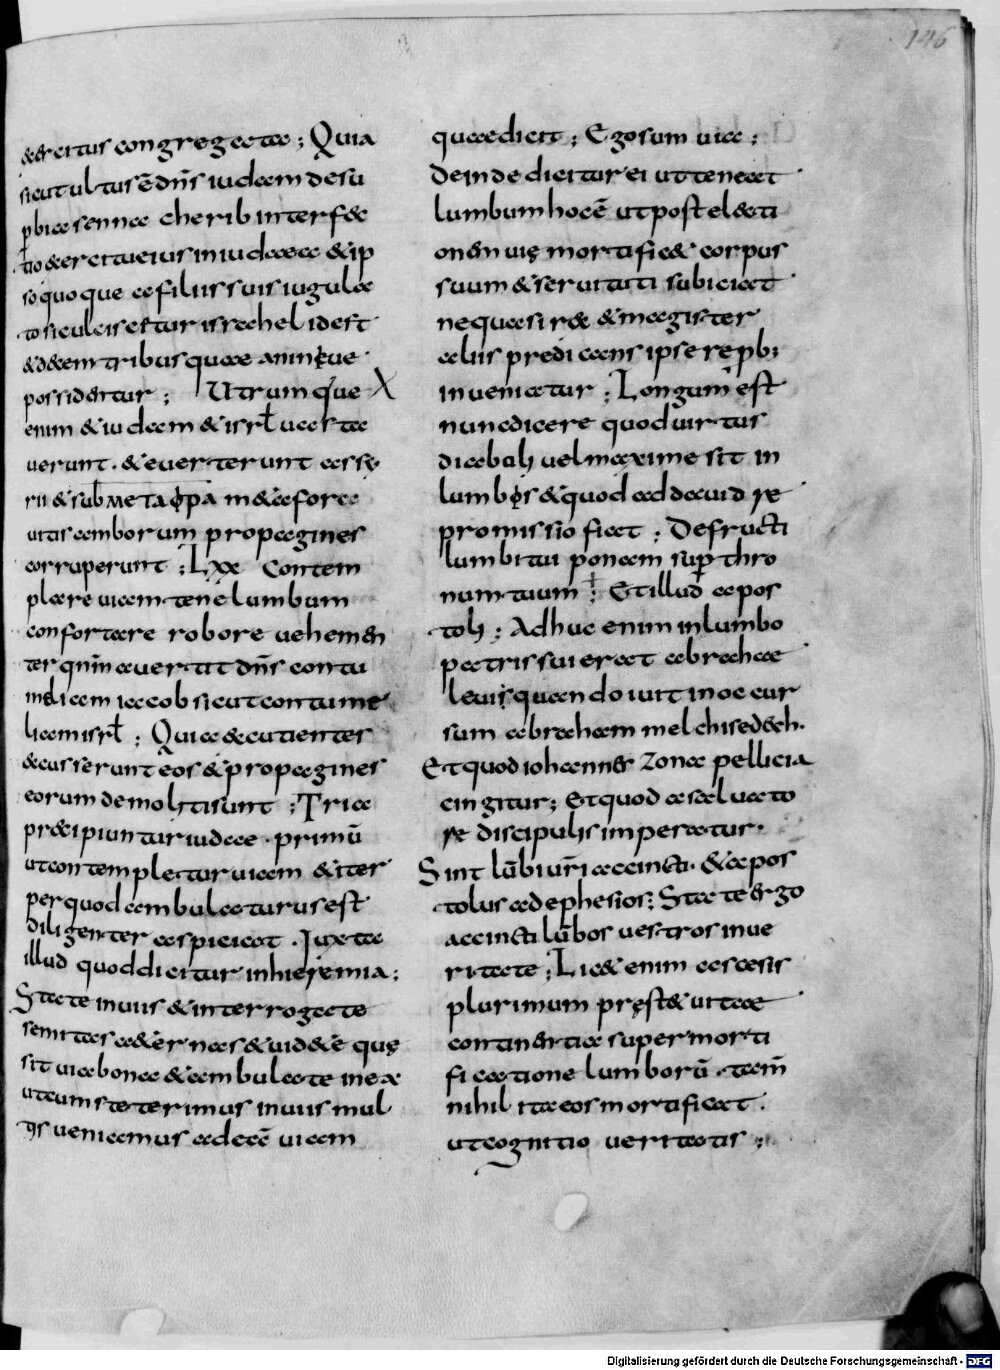 146
&ercitus congregata; Quia
sicut ultus ē dn̄s iudaam desu
pbia sennacherib interfec
tio exercitu eius in iudaea & ip
so quoque a filiis suis iugula
to sic ulciscetur israhel id est
& decem tribus quae a niniue
possidentur; Utrumque X
enim & iudaam & isrł uasta
uerunt. & euerterunt assy
rii & sub ΜΕΤΑΦΡΑ metafora
uitis amborum propagines
corruperunt; Lxx Contem
plare uiam tene lumbum
confortare robore uehemen
ter qnīm auertit dn̄s contu
meliam iacob sicut contume
liam isrł; Quia excutientes
excusserunt eos & propagines
eorum demoliti sunt; Tria
praecipiuntur iudae. primū
ut contempletur uiam & iter
per quod ambulaturus est
diligenter aspiciat. Iuxta
illud quod dicitur in hieremia;
State in uiis & interrogate
semitas aeternas & uidete quę
sit uia bona & ambulate in ea
ut cum steterimus in uiis mul
tis ueniamus ad eā uiam
quae dicit; Ego sum uia;
Deinde dicitur ei ut teneat
lumbum hoc ē ut post electi
onem uię mortificet corpus
suum & seruituti subiciat
ne quasi rex & magister
aliis predicans ipse repb;
inueniatur; Longum est
nunc dicere quod uirtus
diaboli uel maxime sit in
lumbis & quod ad dauid re
promissio fiat; De fructi
lumbi tui ponam sup thro
num tuum; Et illud apos
toli; Adhuc enim in lumbo
patris sui erat abrahae
leuis quando iuit in oc cur
sum abraham melchisedech.
Et quod iohannes zona pellicia
cingitur; Et quod a saluato
re discipulis imperatur.
Sint lūbi ur̄i accincti. & apos
tolus ad ephesios; State ergo
accincti lūbos uestros in ue
ritate; Licet enim ascesis
plurimum pręstet uitae
continentia super morti
ficatione lumborū. tam̄
nihil ita eos mortificat.
ut cognitio ueritatis;
Digitalisierung gefördert durch die Deutsche Forschungsgemeinschaft - DFG